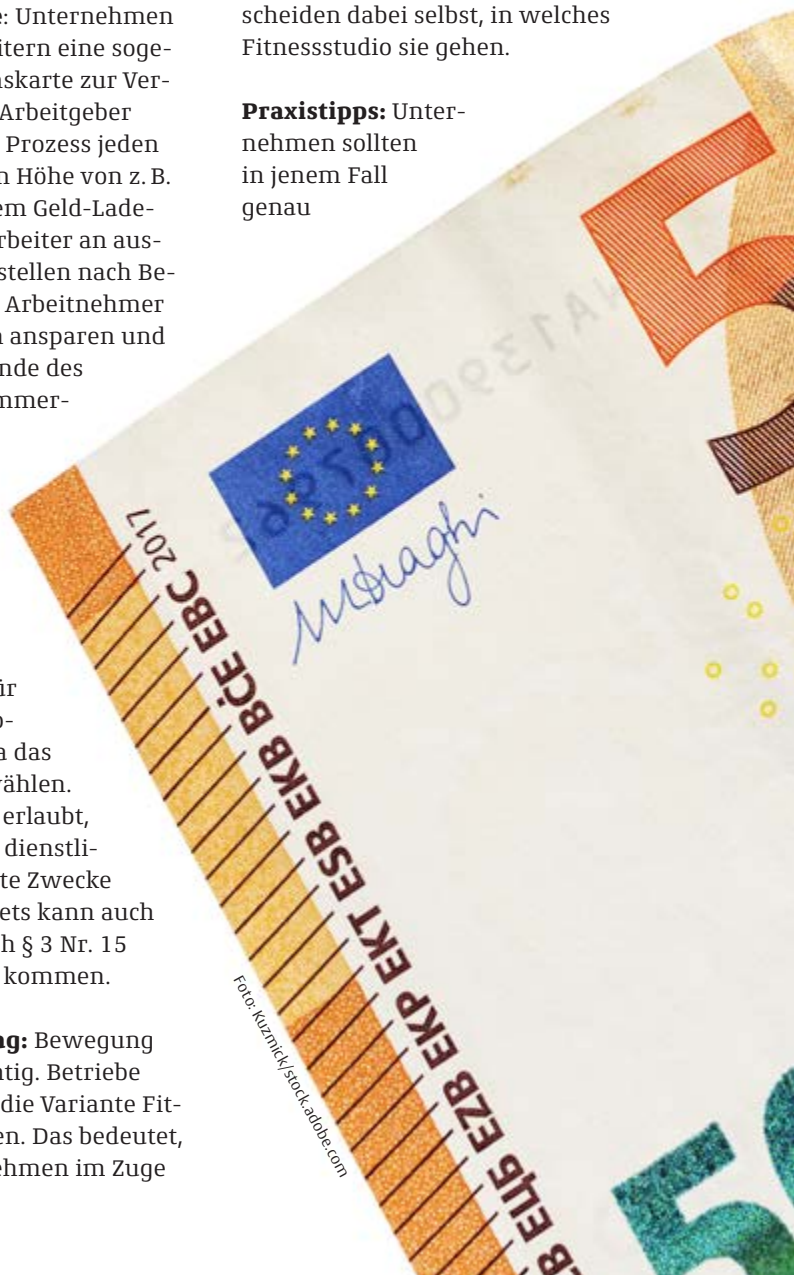 e: Unternehmen
itern eine soge-
nskarte zur Ver-
Arbeitgeber
Prozess jeden
n Höhe von z. B.
em Geld-Lade-
rbeiter an aus-
stellen nach Be-
Arbeitnehmer
n ansparen und
nde des
mmer-
ür
o-
a das
ählen.
erlaubt,
dienstli-
te Zwecke
ets kann auch
h § 3 Nr. 15
kommen.
ag: Bewegung
htig. Betriebe
die Variante Fit-
en. Das bedeutet,
ehmen im Zuge
scheiden dabei selbst, in welches
Fitnessstudio sie gehen.
Praxistipps: Unter-
nehmen sollten
in jenem Fall
genau
CB ЕЦБ EZB EKP EKT ESB EKB BĊE EBC 2017
MDraghi
5
50
Foto: Kuzmick/stock.adobe.com